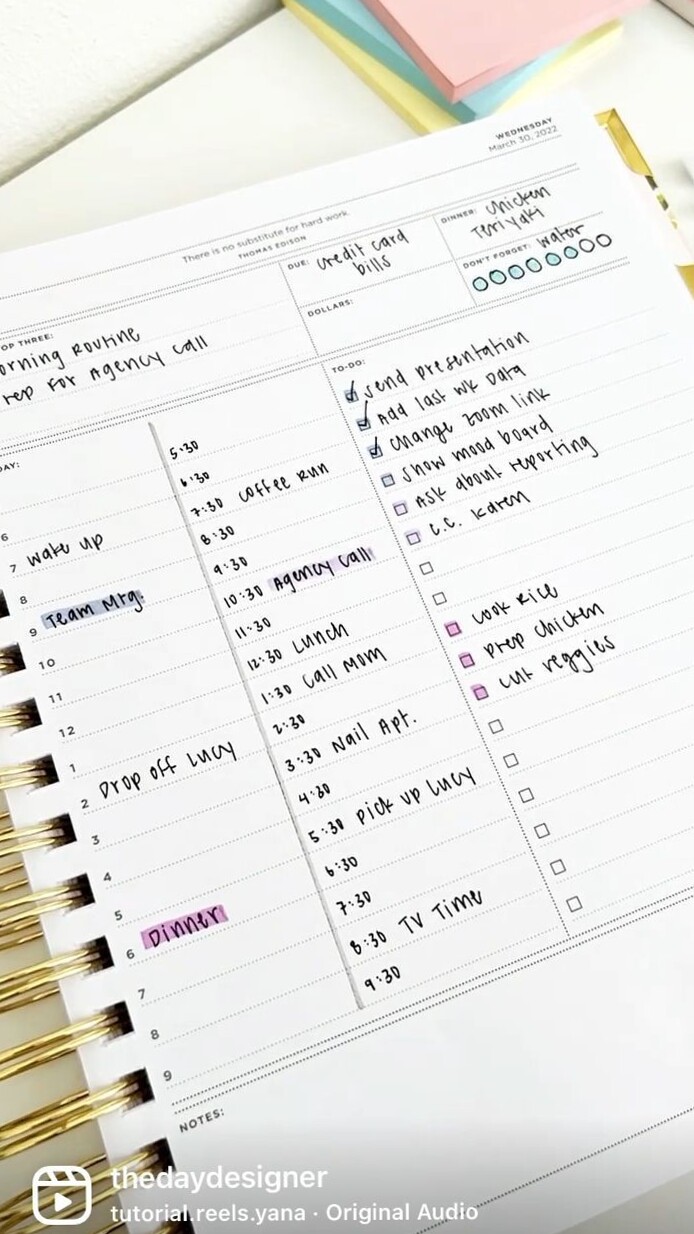 WEDNESDAY
March 30, 2022
There is no substitute for hard work.
THOMAS EDISON
OP THREE:
orning Routine
rep for Agency call
DUE: credit card
bills
DOLLARS:
DINNER: chicken
Teriyaki
DON'T FORGET: water
TO-DO:
send presentation
Add last wk Data
change zoom link
show mood board
Ask about reporting
C.C. Karen
cook Rice
prep chicken
cut veggies
DAY:
6
7 wake up
8
9 Team Mtg.
10
11
12
1
2 Drop off Lucy
3
4
5
6 Dinner
7
8
9
5:30
6:30
7:30 coffee Run
8:30
9:30
10:30 Agency Call
11:30
12:30 Lunch
1:30 Call Mom
2:30
3:30 Nail Apt.
4:30
5:30 pick up Lucy
6:30
7:30
8:30 TV Time
9:30
NOTES:
thedaydesigner
tutorial.reels.yana · Original Audio